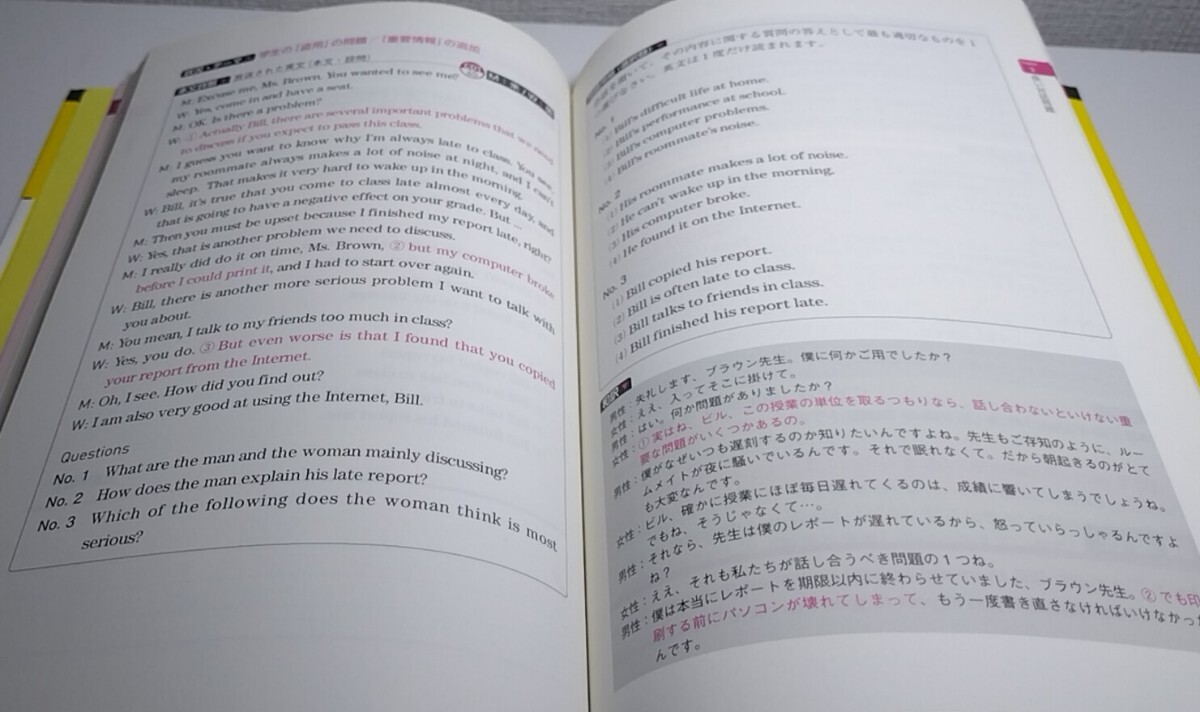 状況・テーマ 学生の「盗用」の問題/「重要情報」の追加
放送された英文(本文・設問)
M: Excuse me, Ms. Brown. You wanted to see me?
W: Yes, come in and have a seat.
M: OK. Is there a problem?
W: ① Actually Bill, there are several important problems that we need
to discuss if you expect to pass this class.
M: I guess you want to know why I'm always late to class. You see,
my roommate always makes a lot of noise at night, and I can't
sleep. That makes it very hard to wake up in the morning.
W: Bill, it's true that you come to class late almost every day, and
that is going to have a negative effect on your grade. But ...
M: Then you must be upset because I finished my report late, right?
W: Yes, that is another problem we need to discuss.
M: I really did do it on time, Ms. Brown, ② but my computer broke
before I could print it, and I had to start over again.
W: Bill, there is another more serious problem I want to talk with
you about.
M: You mean, I talk to my friends too much in class?
W: Yes, you do. ③ But even worse is that I found that you copied
your report from the Internet.
M: Oh, I see. How did you find out?
W: I am also very good at using the Internet, Bill.
Questions
No. 1 What are the man and the woman mainly discussing?
No. 2 How does the man explain his late report?
No. 3 Which of the following does the woman think is most
serious?
会話を聞いて、その内容に関する質問の答えとして最も適切なものを1
つ選びなさい。英文は1度だけ読まれます。
No. 1
(1) Bill's difficult life at home.
(2) Bill's performance at school.
(3) Bill's computer problems.
(4) Bill's roommate's noise.
No. 2
(1) His roommate makes a lot of noise.
(2) He can't wake up in the morning.
(3) His computer broke.
(4) He found it on the Internet.
No. 3
(1) Bill copied his report.
(2) Bill is often late to class.
(3) Bill talks to friends in class.
(4) Bill finished his report late.
和訳
男性:失礼します、ブラウン先生。僕に何かご用でしたか?
女性:ええ、入ってそこに掛けて。
男性:はい。何か問題がありましたか?
女性:①実はね、ビル、この授業の単位を取るつもりなら、話し合わないといけない重
要な問題がいくつかあるの。
男性:僕がなぜいつも遅刻するのか知りたいんですよね。先生もご存知のように、ルー
ムメイトが夜に騒いでいるんです。それで眠れなくて。だから朝起きるのがとて
も大変なんです。
女性:ビル、確かに授業にほぼ毎日遅れてくるのは、成績に響いてしまうでしょうね。
でもね、そうじゃなくて…。
男性:それなら、先生は僕のレポートが遅れているから、怒っていらっしゃるんですよ
ね?
女性:ええ、それも私たちが話し合うべき問題の1つね。
男性:僕は本当にレポートを期限以内に終わらせていました、ブラウン先生。②でも印
刷する前にパソコンが壊れてしまって、もう一度書き直さなければいけなかった
んです。